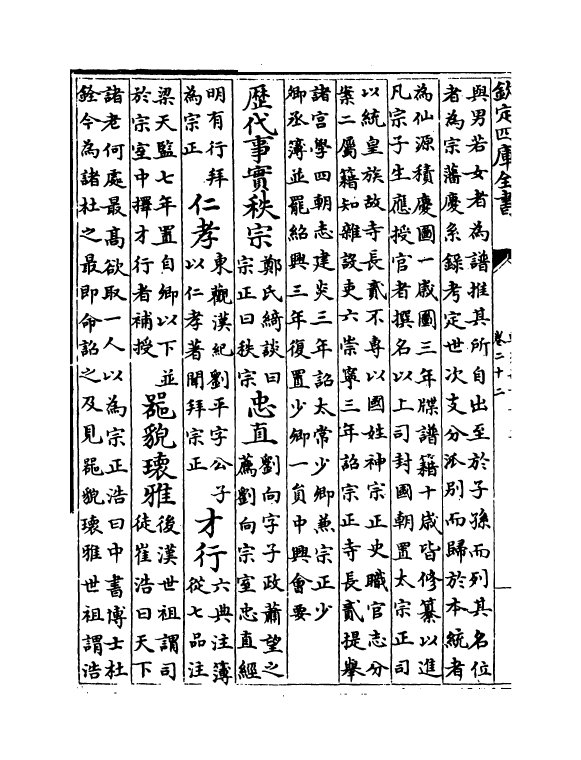 欽定四庫全書
卷二十二
與男若女者為譜推其所自出至於子孫而列其名位
者為宗藩慶系錄考定世次支分派別而歸於本統者
為仙源積慶圖一歲圖三年牒譜籍十歲皆修纂以進
凡宗子生應授官者撰名以上司封國朝置太宗正司
以統皇族故寺長貳不專以國姓神宗正史職官志分
案二屬籍知雜設吏六崇寧三年詔宗正寺長貳提舉
諸宮學四朝志建炎三年詔太常少卿兼宗正少
卿丞簿並罷紹興三年復置少卿一負中興會要
歴代事實秩宗
鄭氏綺談曰
宗正曰秩宗
忠直
劉向字子政蕭望之
薦劉向宗室忠直經
明有行拜
為宗正
仁孝
東觀漢紀劉平字公子
以仁孝著聞拜宗正
才行
六典注簿
從七品注
梁天監七年置自卿以下並
於宗室中擇才行者補授
噐貌瓌雅
後漢世祖謂司
徒崔浩曰天下
諸老何處最髙欲取一人以為宗正浩曰中書博士杜
銓今為諸杜之最即命詔之及見噐貌瓌雅世祖謂浩